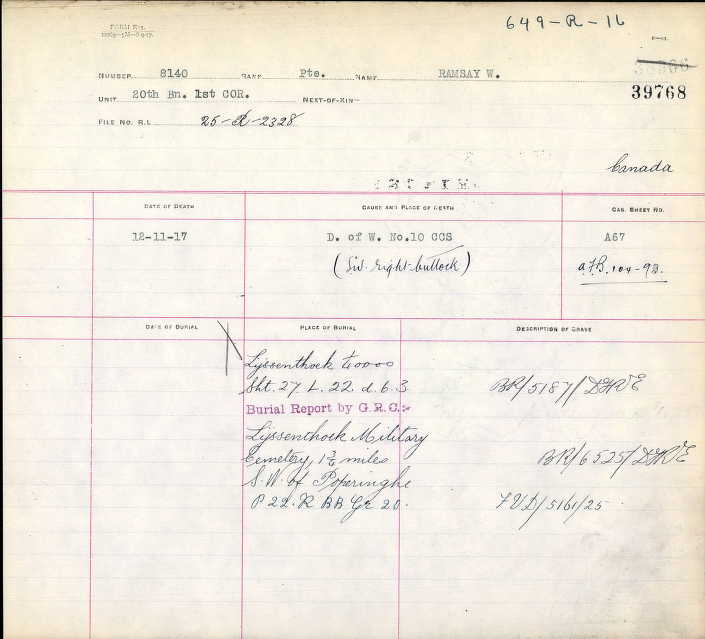 649-R-16
NUMBER 8140 RANK Pte. NAME RAMSAY W.
39768
UNIT 20th Bn. 1st COR. NEXT-OF-KIN
FILE NO. R.L. 25-R-2328
Canada
DATE OF DEATH CAUSE AND PLACE OF DEATH CAS. SHEET NO.
12-11-17 D. of W. No.10 CCS A67
(SW. right buttock) a.F.B. 104-93.
DATE OF BURIAL PLACE OF BURIAL DESCRIPTION OF GRAVE
Lijssenthoek 40000
Sht. 27. L. 22. d. 6. 3 BR/5187/DGRE
Burial Report by G.R.C.:-
Lijssenthoek Military
Cemetery, 1¾ miles BR/6525/DGRE
S.W. of Poperinghe
P 22. R BB Gr 20. FUD/5161/25